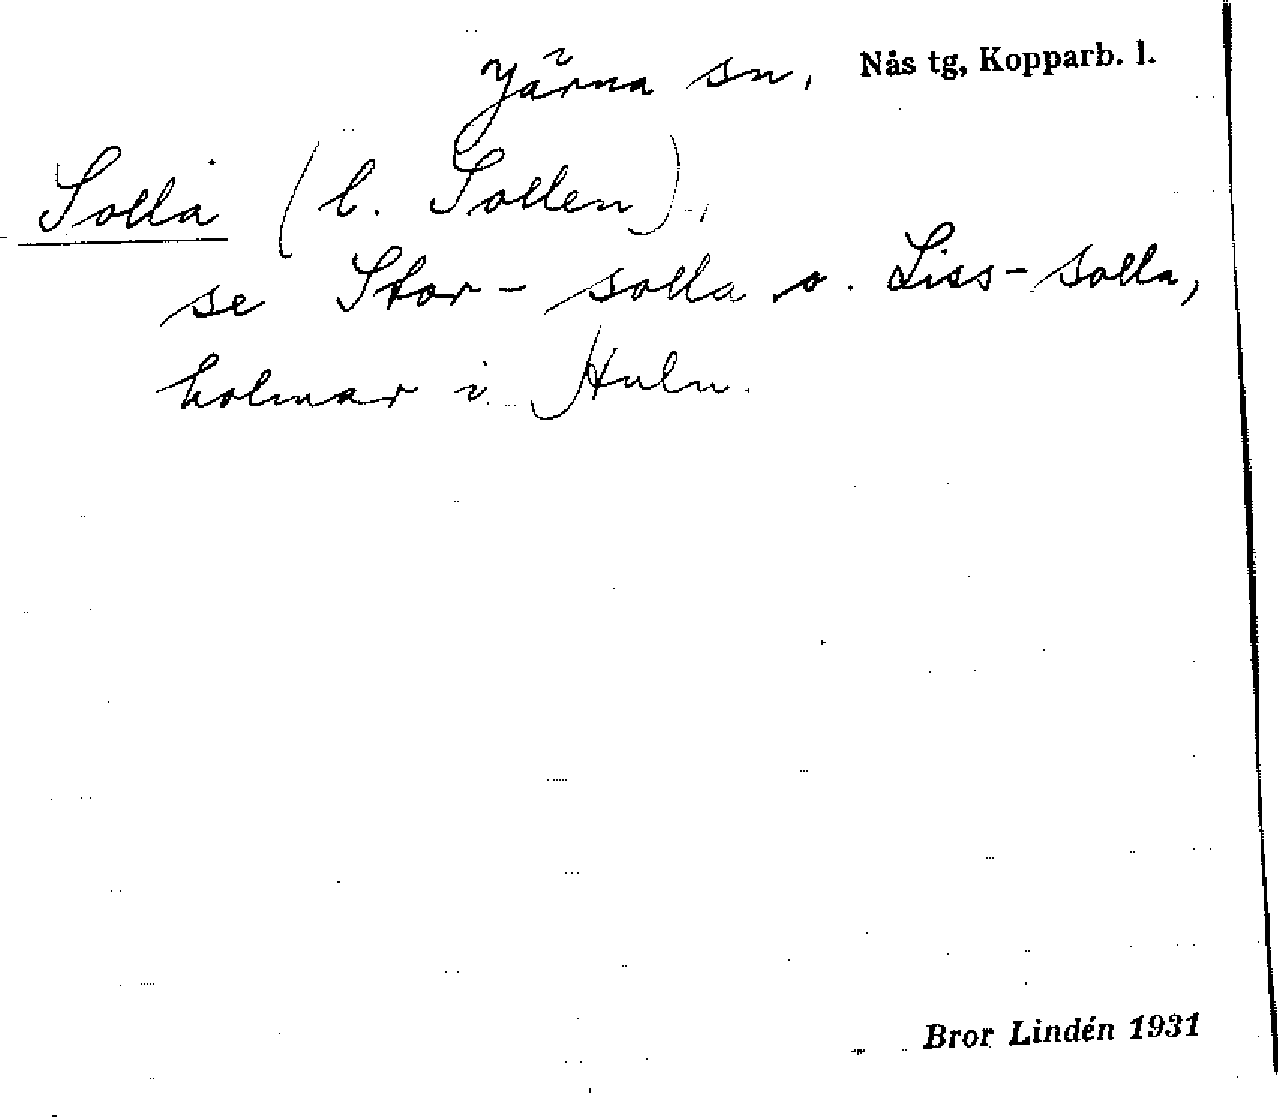 Järna sn, Nås tg, Kopparb. l.
Sollå (l. Sollen),
se Stor-solla o. Liss-solla,
holmar i Huln.
Bror Lindén 1931